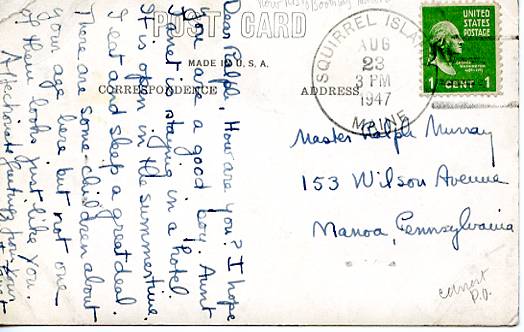 POST CARD
MADE IN U.S.A.
CORRESPONDENCE
ADDRESS
SQUIRREL ISLAND
AUG
23
3 PM
1947
MAINE
UNITED
STATES
POSTAGE
1 CENT 1
Dear Ralph, How are you? I hope
you are a good boy. Aunt
Janet is staying in a hotel.
It is open in the summertime.
I eat and sleep a great deal.
There are some children about
your age here but not one
of them looks just like you.
Affectionate greetings from your
Master Ralph Murray
153 Wilson Avenue
Manoa, Pennsylvania
P.O.